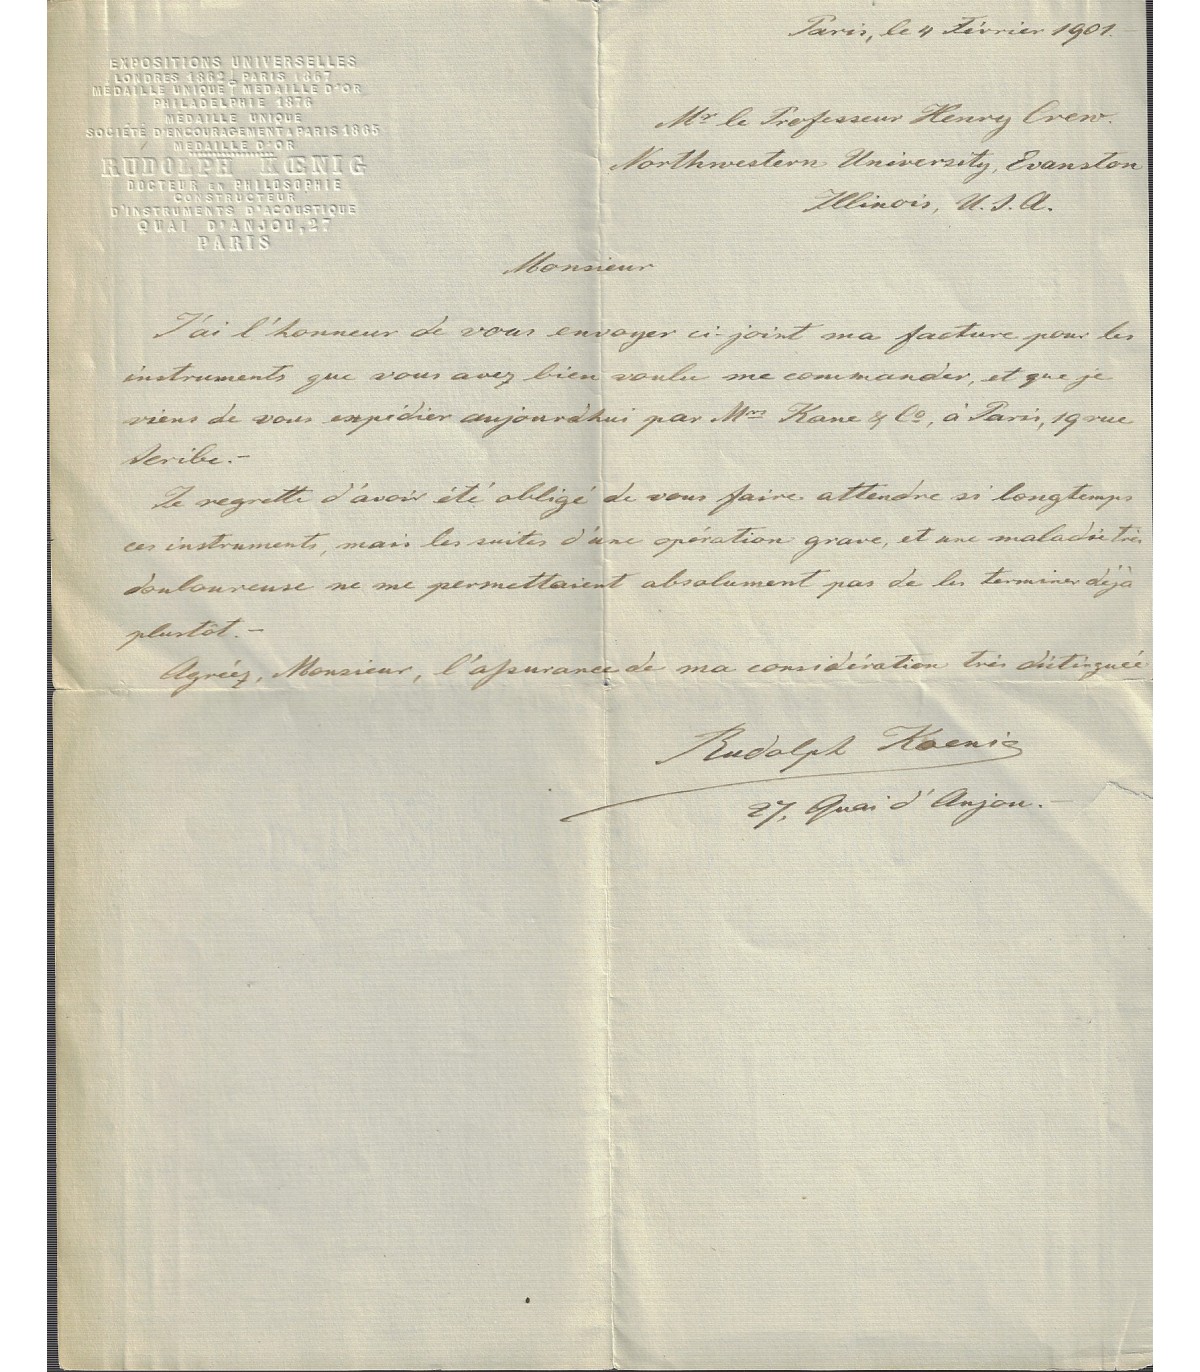 Paris, le 4 Février 1901.-
EXPOSITIONS UNIVERSELLES
LONDRES 1862 PARIS 1867
MÉDAILLE UNIQUE MÉDAILLE D'OR
PHILADELPHIE 1876
MÉDAILLE UNIQUE
SOCIÉTÉ D'ENCOURAGEMENT A PARIS 1865
MÉDAILLE D'OR
RUDOLPH KŒNIG
DOCTEUR EN PHILOSOPHIE
CONSTRUCTEUR
D'INSTRUMENTS D'ACOUSTIQUE
QUAI D'ANJOU, 27
PARIS
Mr le Professeur Henry Crew.
Northwestern University, Evanston
Illinois, U.S.A.
Monsieur
J'ai l'honneur de vous envoyer ci-joint ma facture pour les
instruments que vous avez bien voulu me commander, et que je
viens de vous expédier aujourd'hui par Mrs Kane & Co, à Paris, 19 rue
Scribe.-
Je regrette d'avoir été obligé de vous faire attendre si longtemps
ces instruments, mais les suites d'une opération grave, et une maladie très
douloureuse ne me permettaient absolument pas de les terminer déjà
plustôt.-
Agréez, Monsieur, l'assurance de ma considération très distinguée
Rudolph Koenig
27, Quai d'Anjou.-